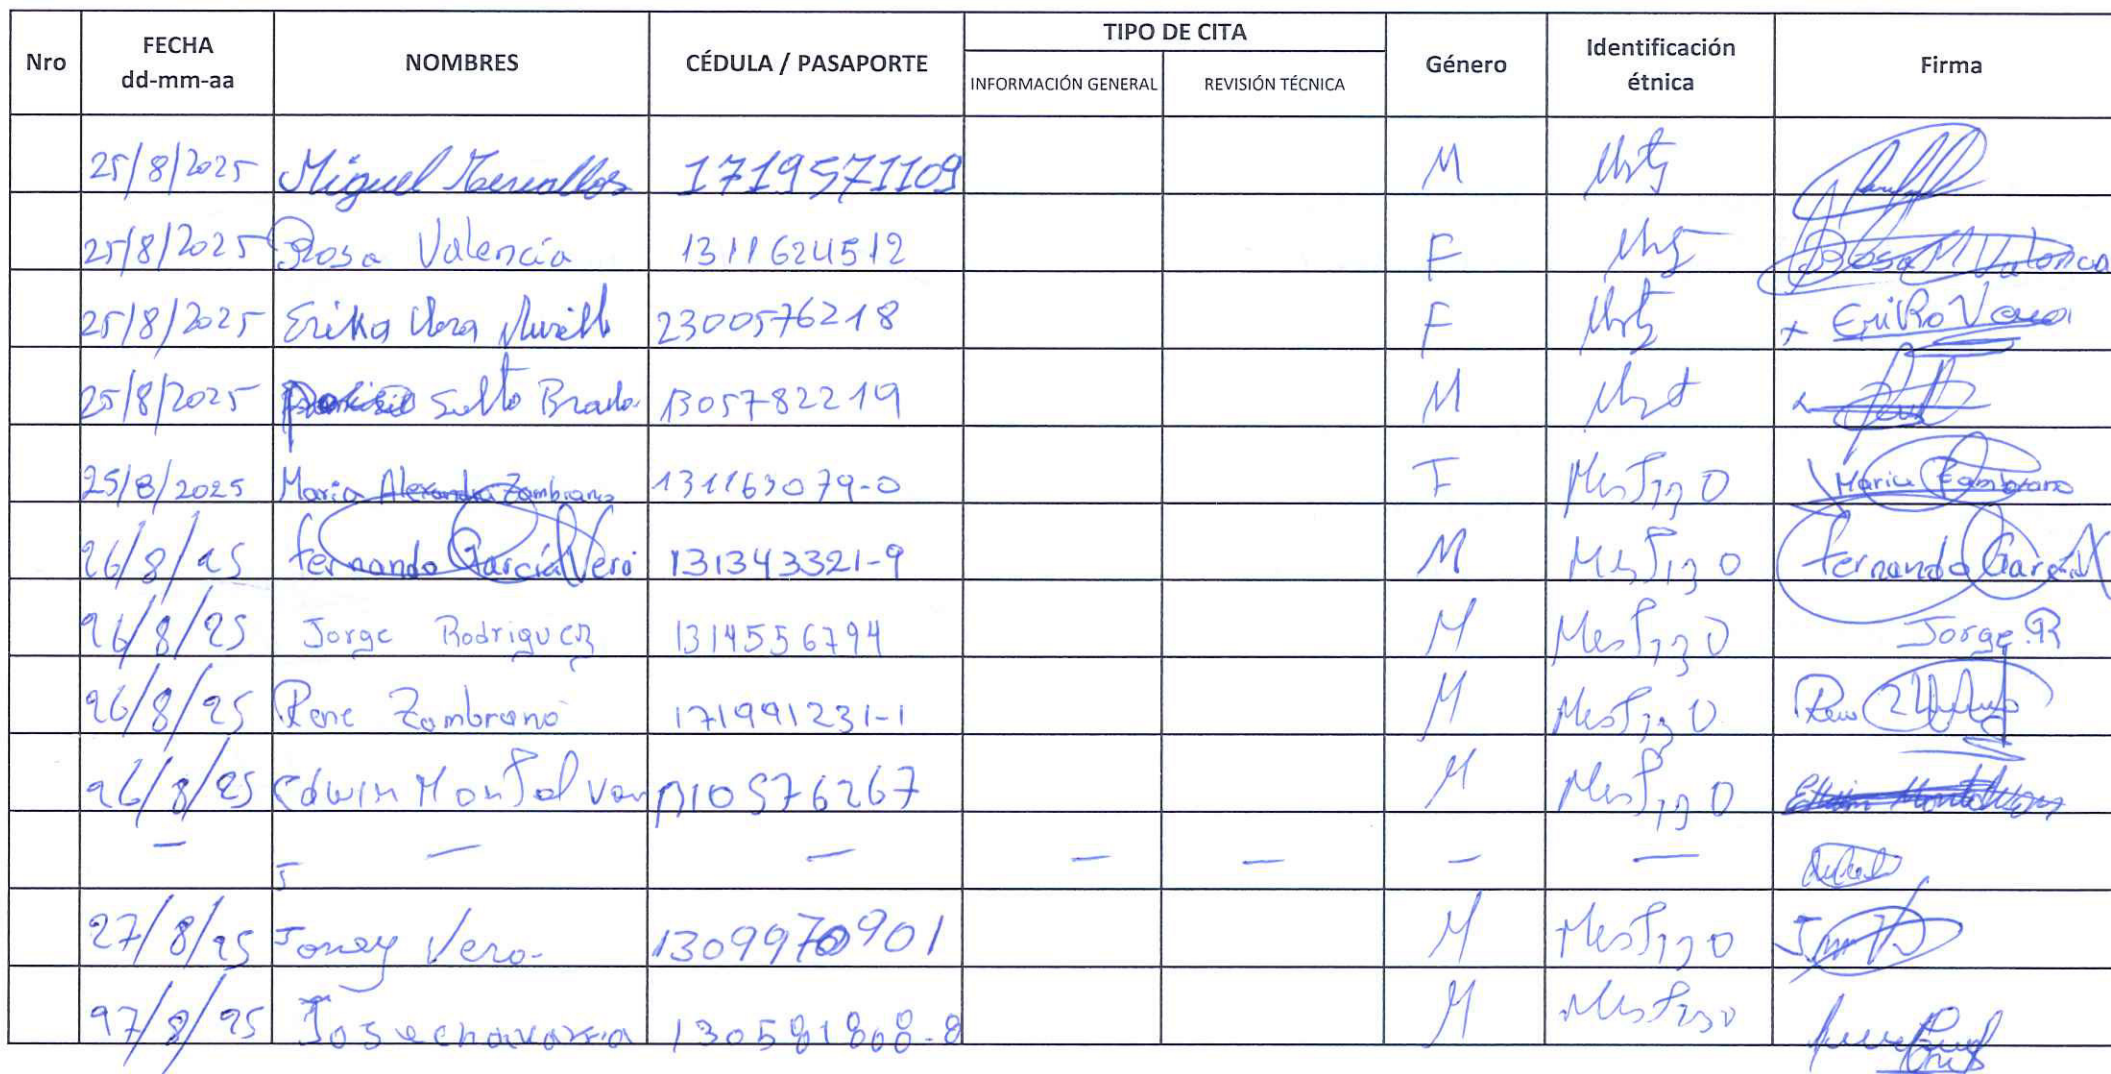 Nro FECHA dd-mm-aa NOMBRES CÉDULA / PASAPORTE TIPO DE CITA INFORMACIÓN GENERAL REVISIÓN TÉCNICA Género Identificación étnica Firma
25/8/2025 Miguel 1719571109 M
25/8/2025 Rosa Valencia 1311624512 F Rosa M Valencia
25/8/2025 Erika Vera Murillo 2300576218 F x Erika Vera
25/8/2025 Solto 1305782219 M
25/8/2025 Maria Alexandra Zambrano 131163079-0 F Mestizo Maria Zambrano
26/8/25 Fernando García Vera 131343321-9 M Mestizo Fernando García V
26/8/25 Jorge Rodriguez 1314556794 M Mestizo Jorge R
26/8/25 Rene Zambrano 171991231-1 M Mestizo Rene
26/8/25 Edwin Montalvan 110576267 M Mestizo Edwin
— J — — — — — —
27/8/25 Joney Vera 1309970901 M Mestizo
27/8/25 Jose chavarria M Mestizo